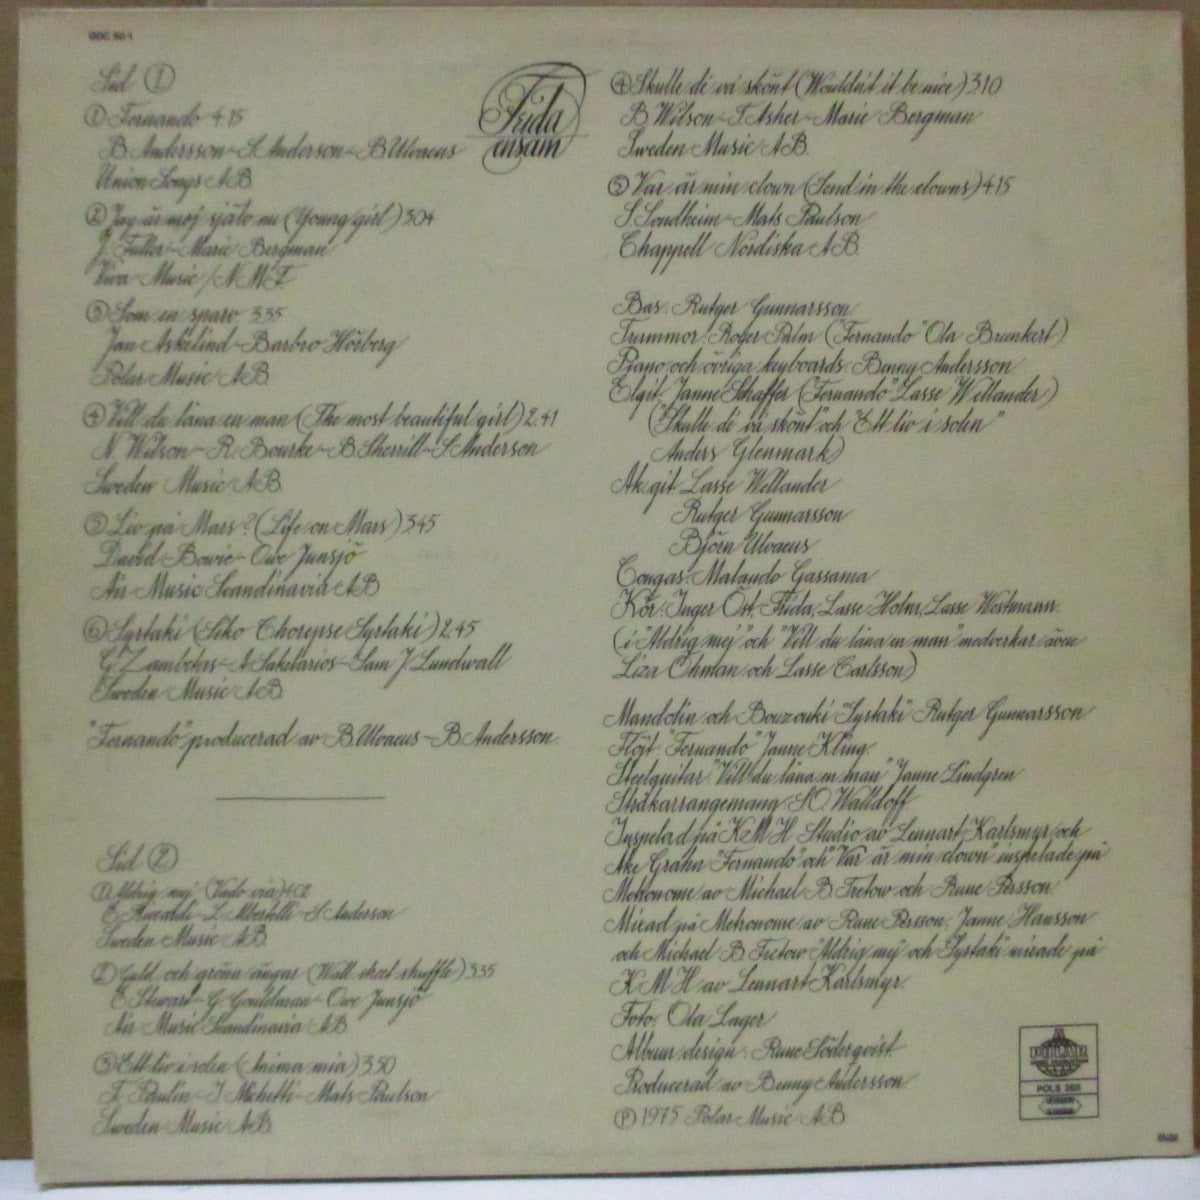 Frida
ensam
Sid 1
1 Fernando 4.15
B. Andersson~S. Anderson~B. Ulvaeus
Union Songs AB.
2 Jag är mej själv nu (Young girl) 3.04
J. Fuller~Marie Bergman
Viva Music/N.M.F.
3 Som en sparv 3.35
Jan Askelind~Barbro Hörberg
Polar Music AB.
4 Vill du låna en man (The most beautiful girl) 2.41
N. Wilson~R. Bourke~B. Sherrill~S. Anderson
Sweden Music AB.
5 Liv på Mars? (Life on Mars) 3.45
David Bowie~Owe Junsjö
Air Music Scandinavia AB
6 Syrtaki (Siko Chorepse Syrtaki) 2.45
G. Zambetas~A. Sakelarios~Sam J. Lundwall
Sweden Music AB.
"Fernando" producerad av B. Ulvaeus~B. Andersson.
Sid 2
1 Aldrig mej (Vado via) 4.02
E. Riccardi~L. Albertelli~S. Anderson
Sweden Music AB.
2 Guld och gröna ängar (Wall street shuffle) 3.35
E. Stewart~G. Gouldman~Owe Junsjö
Air Music Scandinavia AB.
3 Ett liv i solen (Anima mia) 3.50
F. Paulin~I. Michetti~Mats Paulson
Sweden Music AB.
4 Skulle de' va skönt (Wouldn't it be nice) 3.10
B. Wilson~T. Asher~Marie Bergman
Sweden Music AB.
5 Var är min clown (Send in the clowns) 4.15
S. Sondheim~Mats Paulson
Chappell Nordiska AB.
Bas: Rutger Gunnarsson
Trummor: Roger Palm ("Fernando" Ola Brunkert)
Piano och övriga keyboards: Benny Andersson
Elgit: Janne Schaffer ("Fernando" Lasse Wellander)
("Skulle de' va skönt" och "Ett liv i solen"
Anders Glenmark)
Ak. git: Lasse Wellander
Rutger Gunnarsson
Björn Ulvaeus
Congas: Malando Gassama
Kör: Inger Öst, Frida, Lasse Holm, Lasse Westmann.
(i "Aldrig mej" och "Vill du låna en man" medverkar även
Liza Öhman och Lasse Carlsson)
Mandolin och Bouzouki "Syrtaki" Rutger Gunnarsson
Flöjt: "Fernando" Janne Kling.
Steelguitar: "Vill du låna en man" Janne Lindgren
Stråkarrangemang: S.O. Walldoff
Inspelad på K.M.H. Studio av Lennart Karlsmyr och
Åke Grahn "Fernando" och "Var är min clown" inspelade på
Metronome av Michael B. Tretow och Rune Persson
Mixad på Metronome av Rune Persson, Janne Hansson
och Michael B. Tretow "Aldrig mej" och "Syrtaki" mixade på
K.M.H. av Lennart Karlsmyr.
Foto: Ola Lager
Album design: Rune Söderqvist
Producerad av Benny Andersson
Ⓟ 1975 Polar Music AB
POLAR
POLS 265